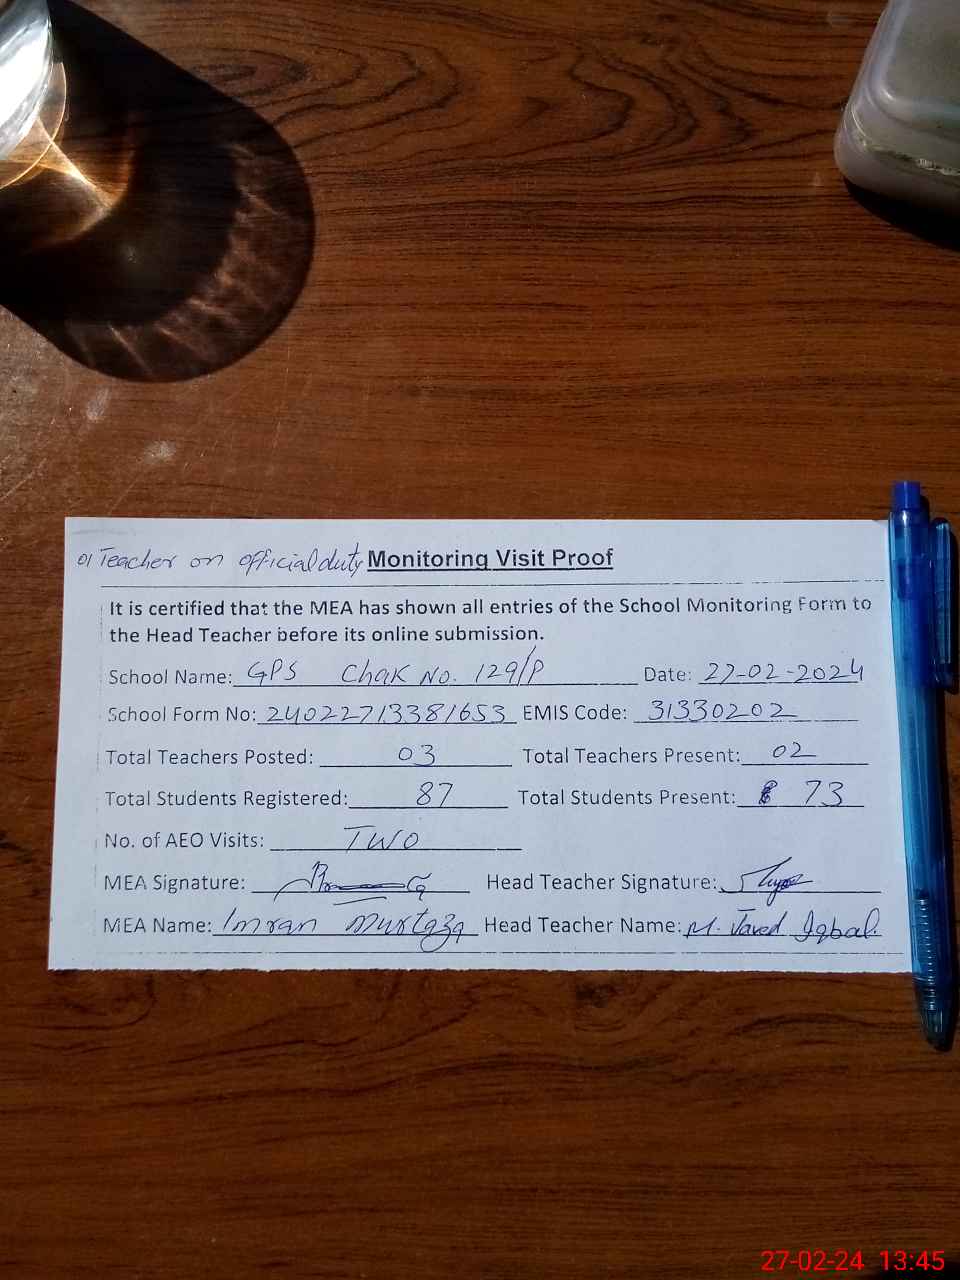 01 Teacher on official duty Monitoring Visit Proof
It is certified that the MEA has shown all entries of the School Monitoring Form to
the Head Teacher before its online submission.
School Name: GPS Chak No. 129/P Date: 27-02-2024
School Form No: 24022713381653 EMIS Code: 31330202
Total Teachers Posted: 03 Total Teachers Present: 02
Total Students Registered: 87 Total Students Present: 73
No. of AEO Visits: Two
MEA Signature: Head Teacher Signature:
MEA Name: Imran Murtaza Head Teacher Name: M. Javed Iqbal.
27-02-24 13:45